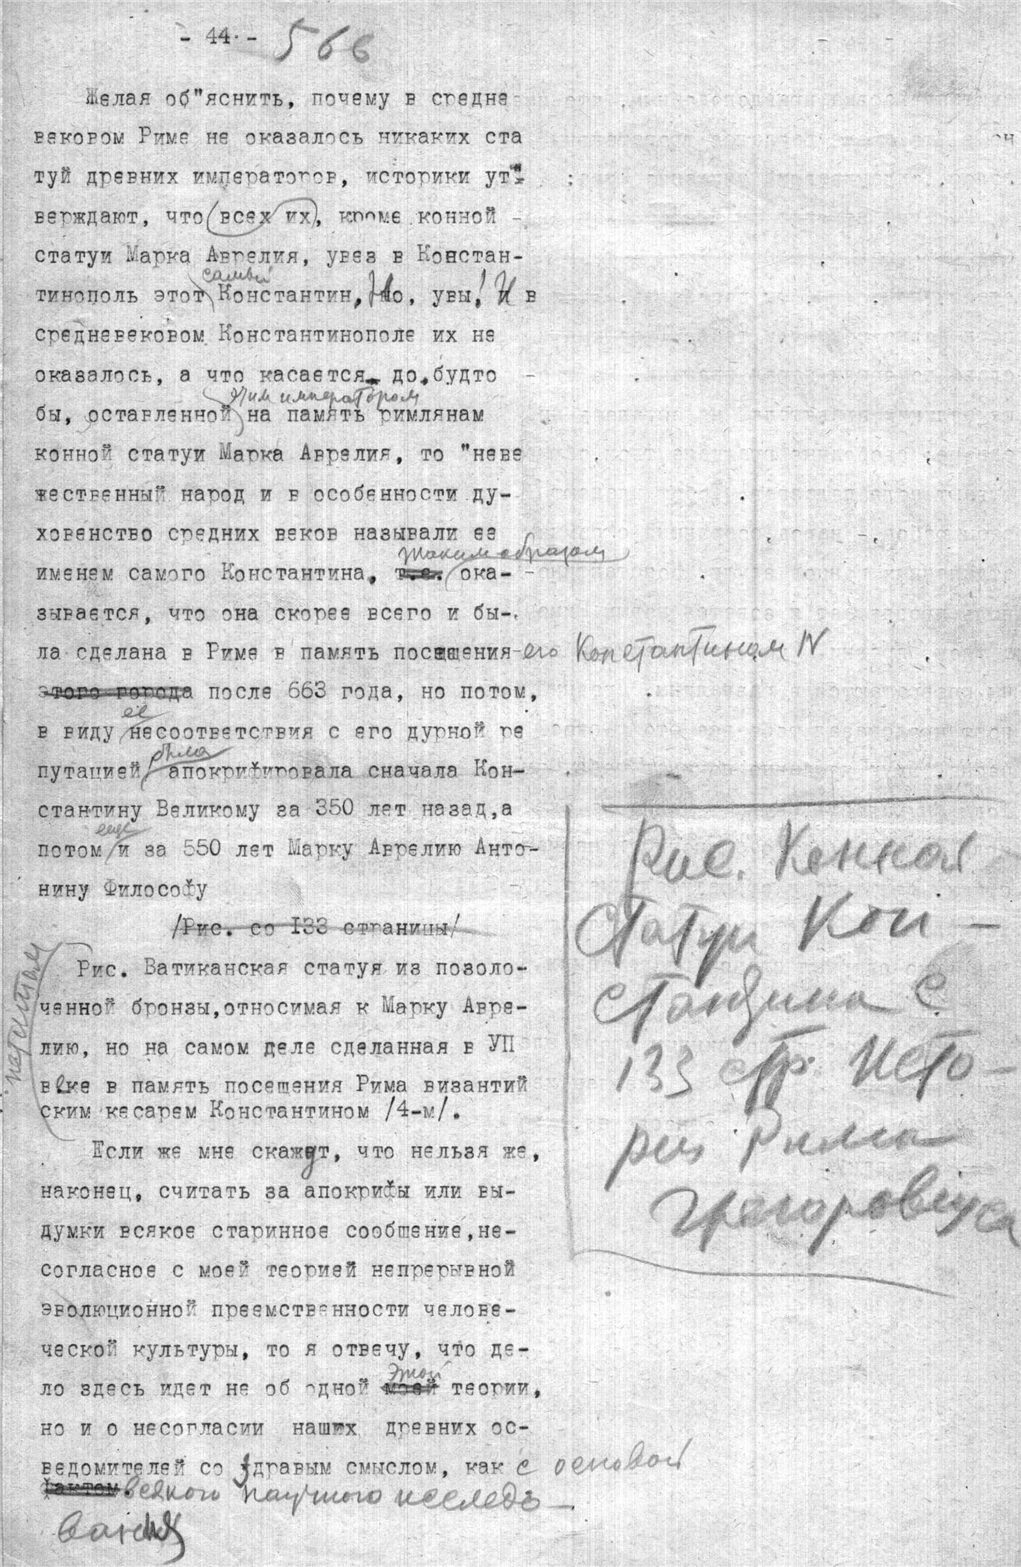 - 44 - 566
Желая об"яснить, почему в средне
вековом Риме не оказалось никаких ста
туй древних императоров, историки ут-
верждают, что всех их, кроме конной
статуи Марка Аврелия, увез в Констан-
самый
тинополь этот Константин, Но, увы! И в
средневековом Константинополе их не
оказалось, а что касается до будто
этим императором
бы, оставленной на память римлянам
конной статуи Марка Аврелия, то "неве
жественный народ и в особенности ду-
ховенство средних веков называли ее
таким образом
именем самого Константина, т.е. ока-
зывается, что она скорее всего и бы-
ла сделана в Риме в память посещения его Константином IV
этого города после 663 года, но потом,
ее
в виду несоответствия с его дурной ре
была
путацией апокрифировала сначала Кон-
стантину Великому за 350 лет назад,а
еще
потом и за 550 лет Марку Аврелию Анто-
нину Философу
/Рис. со 133 страницы/
Рис. Ватиканская статуя из позоло-
ченной бронзы,относимая к Марку Авре-
лию, но на самом деле сделанная в УП
веке в память посещения Рима византий
ским кесарем Константином /4-м/.
петитом
Рис. Конная
статуи Кон-
стантина с
133 стр. Исто-
рии Рима
Грегоровиуса
Если же мне скажут, что нельзя же,
наконец, считать за апокрифы или вы-
думки всякое старинное сообщение,не-
согласное с моей теорией непрерывной
эволюционной преемственности челове-
ческой культуры, то я отвечу, что де-
этой
ло здесь идет не об одной моей теории,
но и о несогласии наших древних ос-
ведомителей со здравым смыслом, как с основой
фактом всякого научного исследо-
вания